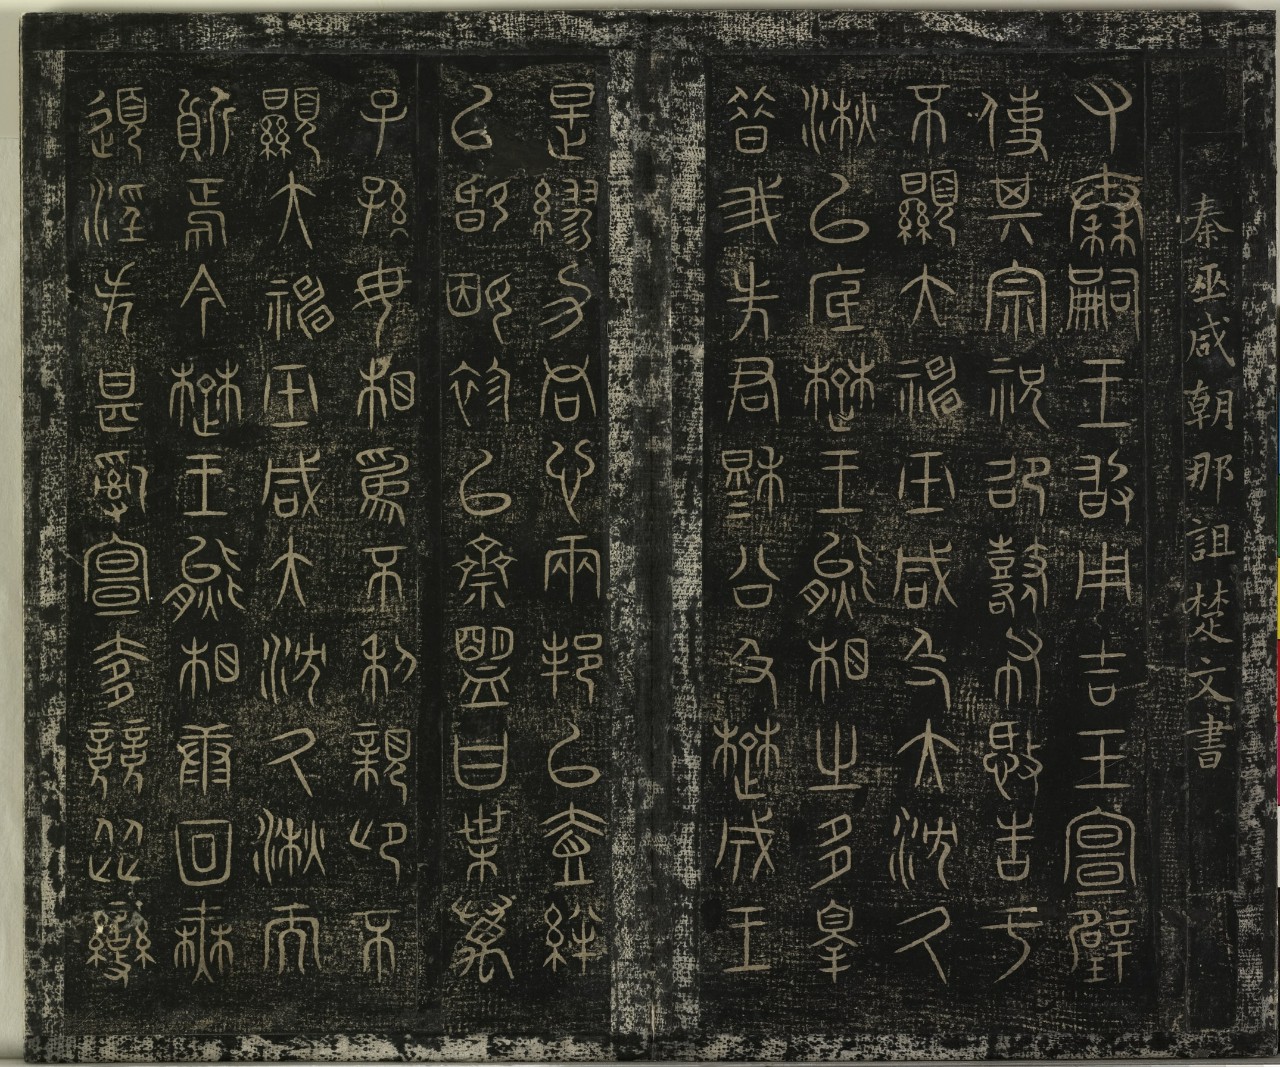 秦巫咸朝那詛楚文書
又秦嗣王敢用吉玉宣璧
使其宗祝卲鼛布憝告于
不顯大神巫咸及大沈久
湫以底楚王熊相之多辠
昔我先君穆公及楚成王
是繆力同心兩邦以壹絆
以婚姻袗以齋盟曰枼萬
子孫毋相為不利親卬不
顯大神巫咸大沈久湫而
質焉今楚王熊相康回無
道淫失甚亂宣奓競從變